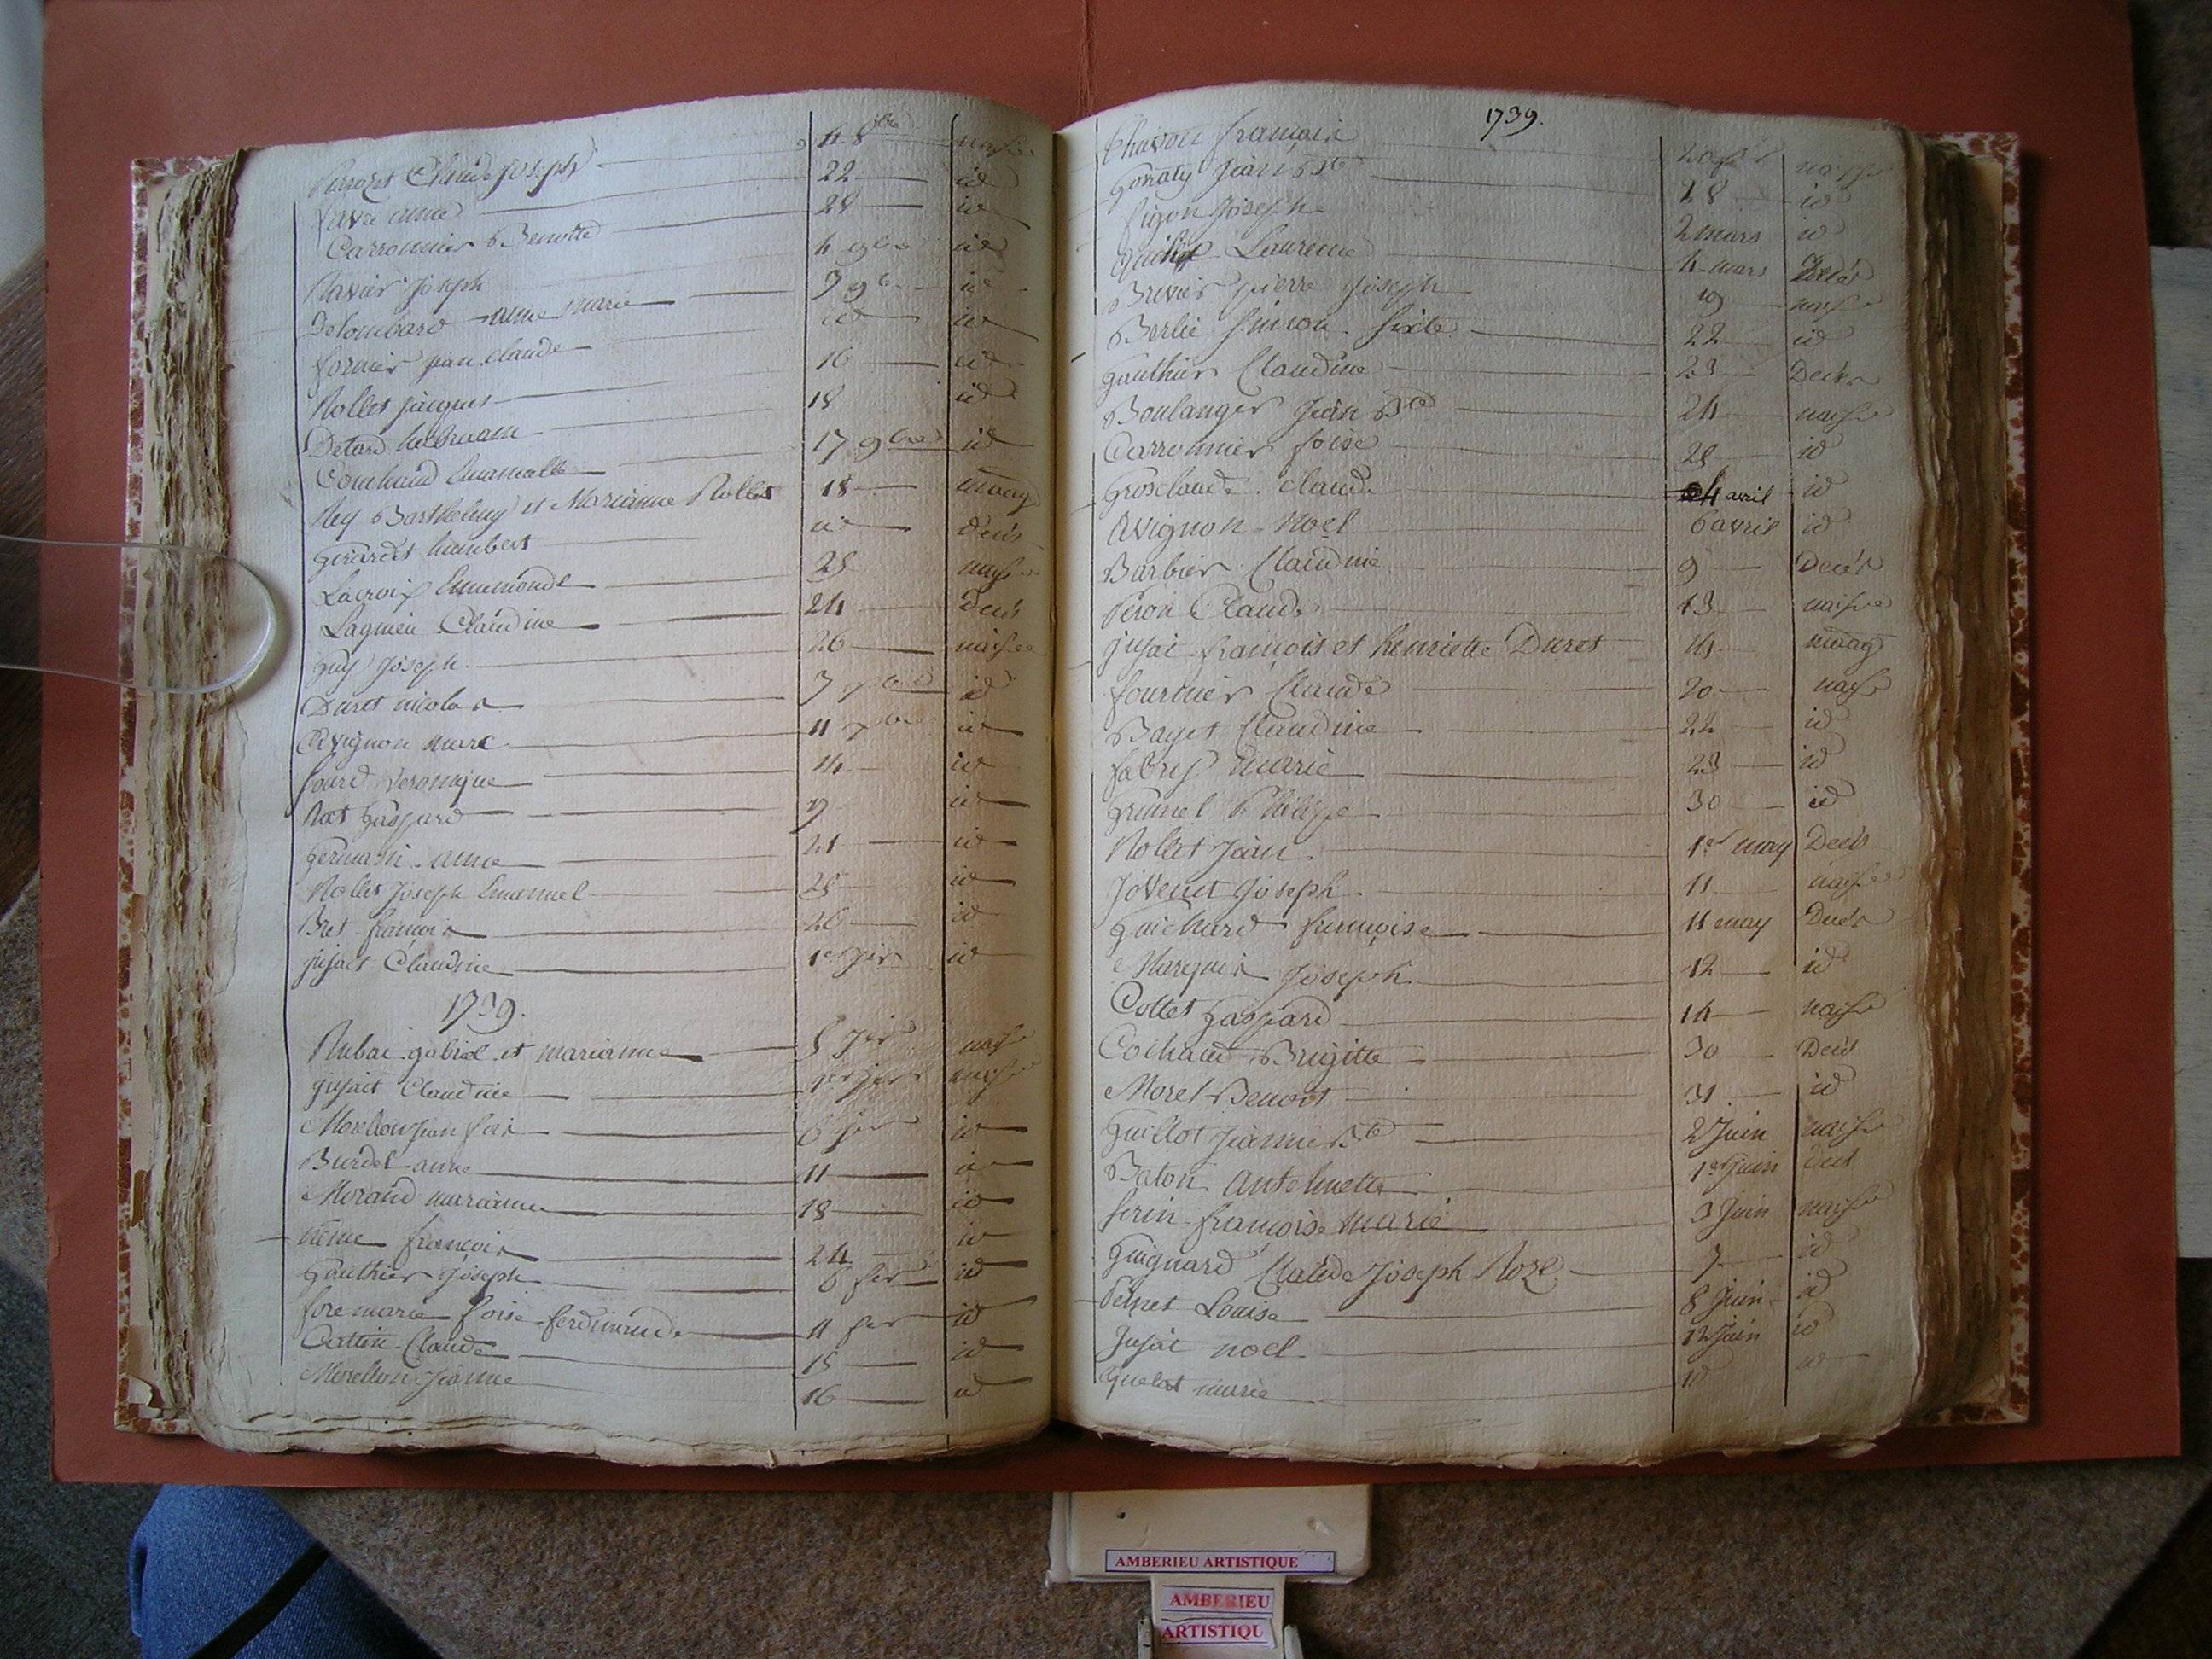 Perrozet Claude Joseph 4 8bre naissce
favre anne 22 id
Carronnier Benoitte 28 id
Ravier Joseph 4 9bre id
Delombard anne marie 7 9bre id
fornier jean claude id id
Rollet jacques 16 id
Detard 18 id
Couchaud Emanuelle 17 9bre id
Rey Barthelemy et Marianne Rollet 18 maag
Girardet humbert id décés
Lacroix Ennemonde 25 naissce
Lagnieu Claudine 24 Décés
Guy Joseph 26 naissce
Duret nicolas 7 id
Avignon marc 11 id
Veronique 14 id
Gaspard 19 id
Germain anne 21 id
Rollet Joseph Emanuel 25 id
Bret françois 26 id
jujat Claudine 1er jer id
1739.
Rubat gabriel et marianne 5 jer naisse
jujat Claudine 1er jer naisse
Morellon jean fois 6 jer id
Burdet anne 11 id
Morand marianne 18 id
françois 24 id
Gauthier Joseph 6 fer id
fore marie foise ferdinande 11 fer id
Cattin Claude 15 id
Morellon Jeanne 16 id
1739.
Chavon francois 20 naisse
Gonnaty Jean Bste 28 id
figon Joseph 2 mars id
Laurence 4 mars Décés
Brevier pierre Joseph 19 naisse
Berlie simon sixte 22 id
Gauthier Claudine 23 Décés
Boulanger Jean Bte 24 naisse
Carronnier foise 25 id
Grosclaude Claude 4 avril id
Avignon Noel 6 avril id
Barbier Claudine 9 Décés
Peron Claude 13 naissce
jujat françois et henriette Duret 14 maag
fournier Claude 20 naisse
Bayet Claudine 22 id
fabry marie 23 id
Grumel Philippe 30 id
Rollet Jean 1er may Décés
Jovenet Joseph 11 naissce
Guichard françoise 11 may Décés
Marquis Joseph 12 id
Collet Gaspard 14 naisse
Cochaud Brigitte 30 Décés
Morel Benoit 31 id
Guillot Jeanne Bte 2 Juin naisse
Baton Antelmette 1er juin decés
ferin françoise marie 3 Juin naisse
Guignard Claude Joseph Roze 7 id
Pernet Louise 8 Juin id
Jujat noel 12 Juin id
Guelat marie id id
AMBERIEU ARTISTIQUE
AMBERIEU
ARTISTIQU